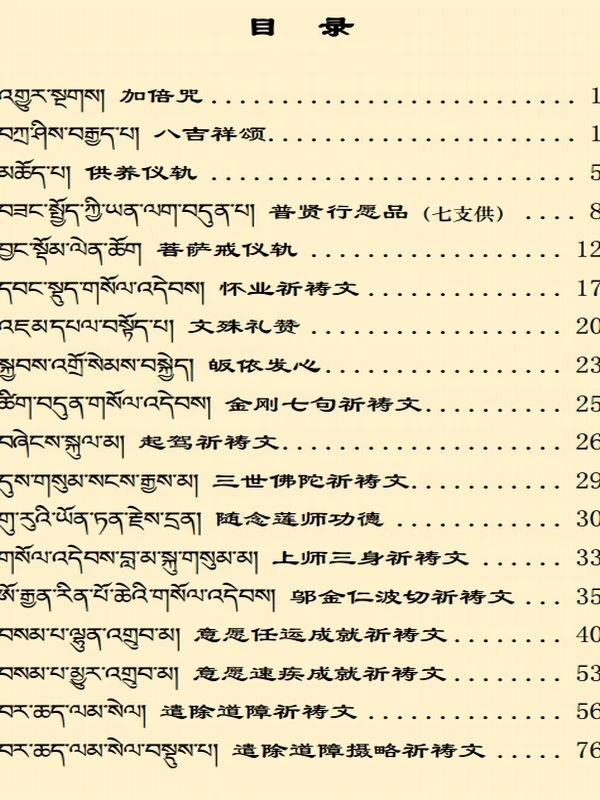 目 录
འགྱུར་སྔགས། 加倍咒 . . . . . . . . . . . . . . . . . . . . . . . . . . . 1
བཀྲ་ཤིས་བརྒྱད་པ། 八吉祥颂. . . . . . . . . . . . . . . . . . . . . . . 1
མཆོད་པ། 供养仪轨 . . . . . . . . . . . . . . . . . . . . . . . . . . . . 5
བཟང་སྤྱོད་ཀྱི་ཡན་ལག་བདུན་པ། 普贤行愿品（七支供） . . . . 8
བྱང་སྡོམ་ལེན་ཆོག 菩萨戒仪轨 . . . . . . . . . . . . . . . . . . . . 12
དབང་སྡུད་གསོལ་འདེབས། 怀业祈祷文 . . . . . . . . . . . . . . . 17
འཇམ་དཔལ་བསྟོད་པ། 文殊礼赞 . . . . . . . . . . . . . . . . . . . 20
སྐྱབས་འགྲོ་སེམས་བསྐྱེད། 皈依发心. . . . . . . . . . . . . . . . . . 23
ཚིག་བདུན་གསོལ་འདེབས། 金刚七句祈祷文. . . . . . . . . . . 25
བཞེངས་སྐུལ་མ། 起驾祈祷文. . . . . . . . . . . . . . . . . . . . . 26
དུས་གསུམ་སངས་རྒྱས་མ། 三世佛陀祈祷文. . . . . . . . . . . . 29
གུ་རུའི་ཡོན་ཏན་རྗེས་དྲན། 随念莲师功德 . . . . . . . . . . . . . 30
གསོལ་འདེབས་བླ་མ་སྐུ་གསུམ་མ། 上师三身祈祷文 . . . . . . . . 33
ཨོ་རྒྱན་རིན་པོ་ཆེའི་གསོལ་འདེབས། 邬金仁波切祈祷文 . . . . 35
བསམ་པ་ལྷུན་འགྲུབ་མ། 意愿任运成就祈祷文 . . . . . . . . . 40
བསམ་པ་མྱུར་འགྲུབ་མ། 意愿速疾成就祈祷文 . . . . . . . . . 53
བར་ཆད་ལམ་སེལ། 遣除道障祈祷文 . . . . . . . . . . . . . . . 56
བར་ཆད་ལམ་སེལ་བསྡུས་པ། 遣除道障摄略祈祷文 . . . . . . 76